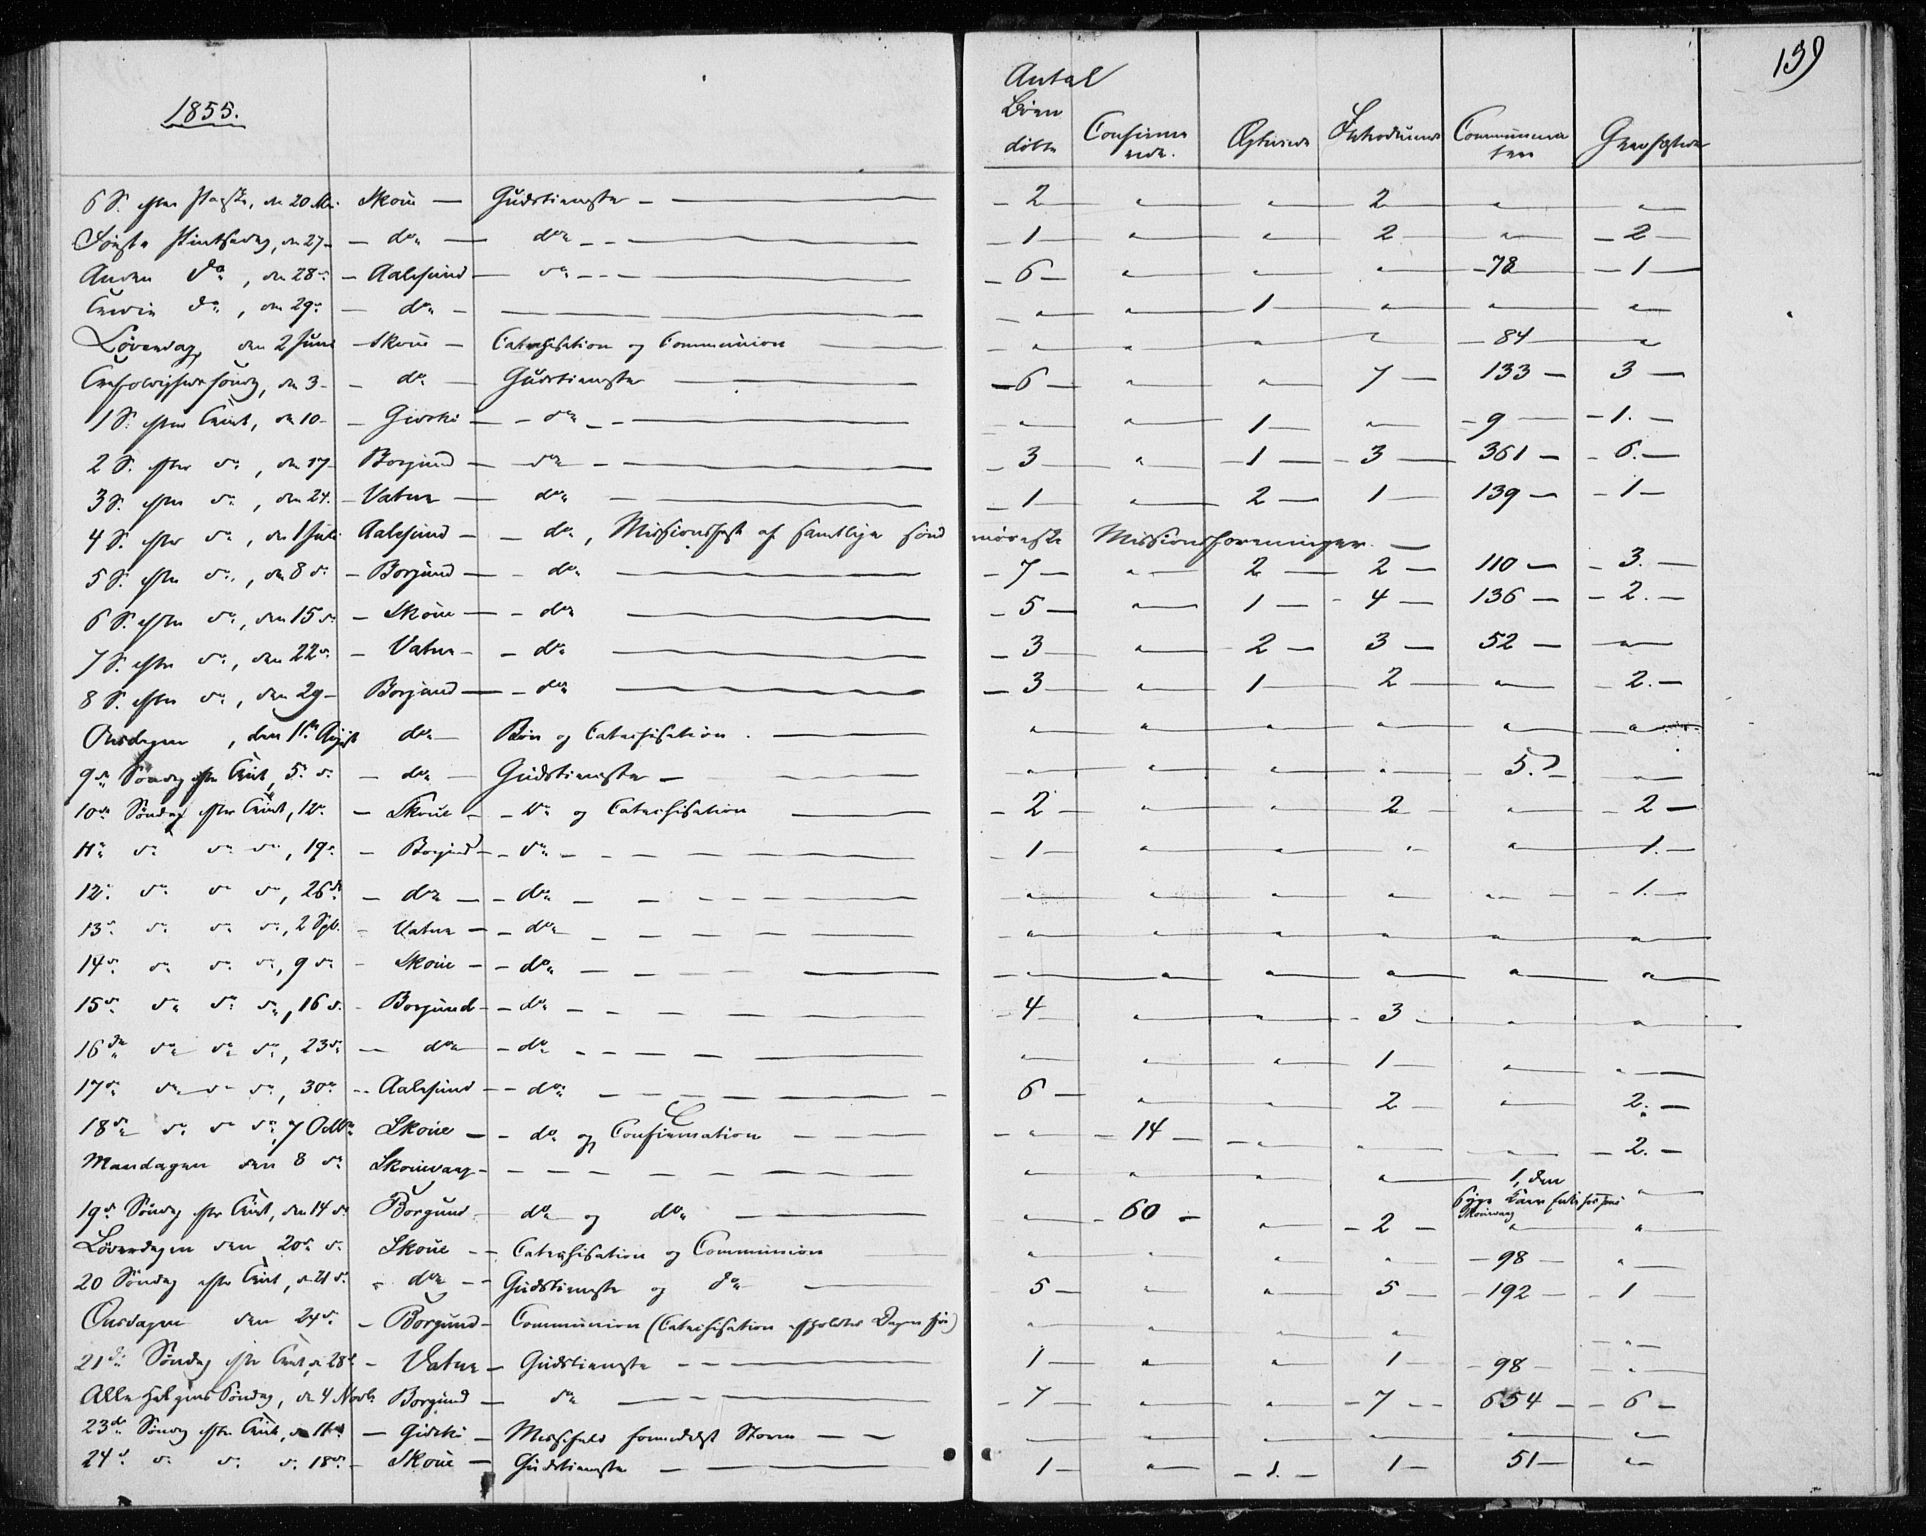 139
1855.
Antal
Børn døbte Confirmerede. Ægteviede Introducerede Communicanter Gravfæstede
6 S. efter Paaske, den 20 Mai Skoue — Gudstieneste — 2 " " 2 " "
Første Pintsedag, den 27 — do — do — 1 " " 2 " 2
Anden do, den 28 — Aalesund — do — 6 " " " 78 1
Tredie do, den 29 — do — " " 1 " " "
Løverdag, den 2 Juni Skoue — Catechisation og Communion " " " " 84 "
Trefoldigheds Søndag, den 3 — do Gudstieneste 6 " " 7 133 3
1 S. efter Trinit, den 10 — Giøske — do — " " 1 " 9 1.
2 S. efter do, den 17 Borgund — do — 3 " 1 3 361 6.
3 S. efter do, den 24. Vatne — do — 1 " 2 1 139 1
4 S. efter do, den 1 Juli Aalesund — do, Missionsfest af samtlige søndmørske Missionsforeninger
5 S. efter do, den 8 do — Borgund — do 7 " 2 2 110 3.
6 S. efter do, den 15 do — Skoue — do 5 " 1 4 136 2.
7 S. efter do, den 22 do — Vatne — do 3 " 2 3 52 "
8 S. efter do, den 29 — Borgund — do 3 " 1 2 " 2.
Onsdagen, den 1ste August do — Bøn og Catechisation. " " " " " "
9de Søndag efter Trint, 5 do — do — Gudstieneste — " " " " 5.? "
10de Søndag efter Trint, 12 do — Skoue — do og Catechisation 2 " " 2 " 2
11 do do do, 19 do — Borgund — do 1 " " " " 1.
12 do do do, 26 do — do — do " " " " " 1.
13 do do do, 2 Sptb. — Vatne — do " " " " " "
14 do do do, 9 do — Skoue — do " " " " " "
15 do do do, 16 do — Borgund — do 4 " " 3 " "
16de do do do, 23 do — do — do " " " 1 " "
17 do do do, 30 do — Aalesund — do 6 " " 2 " 2.
18 do do do, 7 Octbr Skoue — do og Confirmation " 14 " " " 2.
Mandagen den 8 do Skouevaag — " " " " 1, den "
19de Søndag efter Trint, den 14 do Borgund do og do " 60 " 2 " "
Løverdagen den 20 do Skoue — Catechisation og Communion " " " " 98 "
20 Søndag efter Trint, d 21 do " do — Gudstieneste og do 5 " " 5 192 1
Onsdagen den 24 do — Borgund — Communion (Catechisation afholdtes Dagen før) " " " " "
21de Søndag efter Trint, d 28 do — Vatne — Gudstieneste 1 " " 1 98 "
Alle Helgens Søndag, d 4 Novbr Borgund — do 7 " " 7 654 6
23de Søndag efter Trint, d 11 do — Giøske — Messefald formedelst Storm " " " " " "
24 do do do 18 do — Skoue — Gudstieneste 1 " 1. 1 51 "